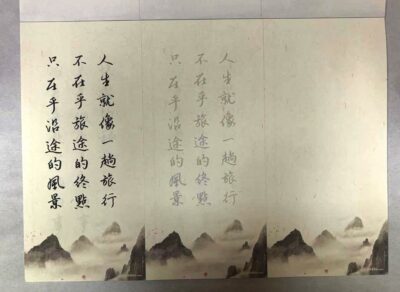 人生就像一趟旅行
不在乎旅途的終點
只在乎沿途的風景
人生就像一趟旅行
不在乎旅途的終點
只在乎沿途的風景